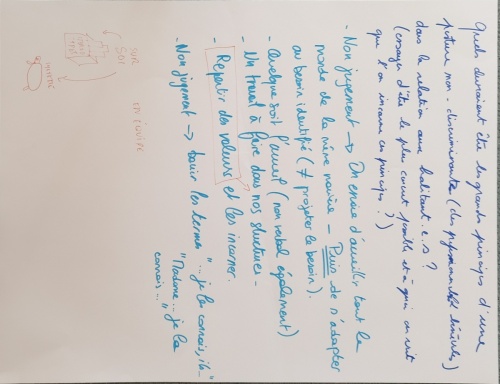 Quels devraient être les grands principes d'une
posture non-discriminante (des professionnel·les/bénévoles)
dans la relation aux habitant.e.s ?
(essayer d'être le plus concret possible et à quoi on voit
que l'on incarne ces principes ?)
- Non jugement → On essaie d'accueillir tout le
monde de la même manière - Puis de s'adapter
au besoin identifié (≠ projeter le besoin).
- Quelque soit l'accueil (non verbal également)
- Un travail à faire dans nos structures -
- Repartir des valeurs et les incarner.
- Non jugement → bannir les termes "... je les connais, ils -
"Madame... je la
connais..."
SUR
SOI
EN EQUIPE